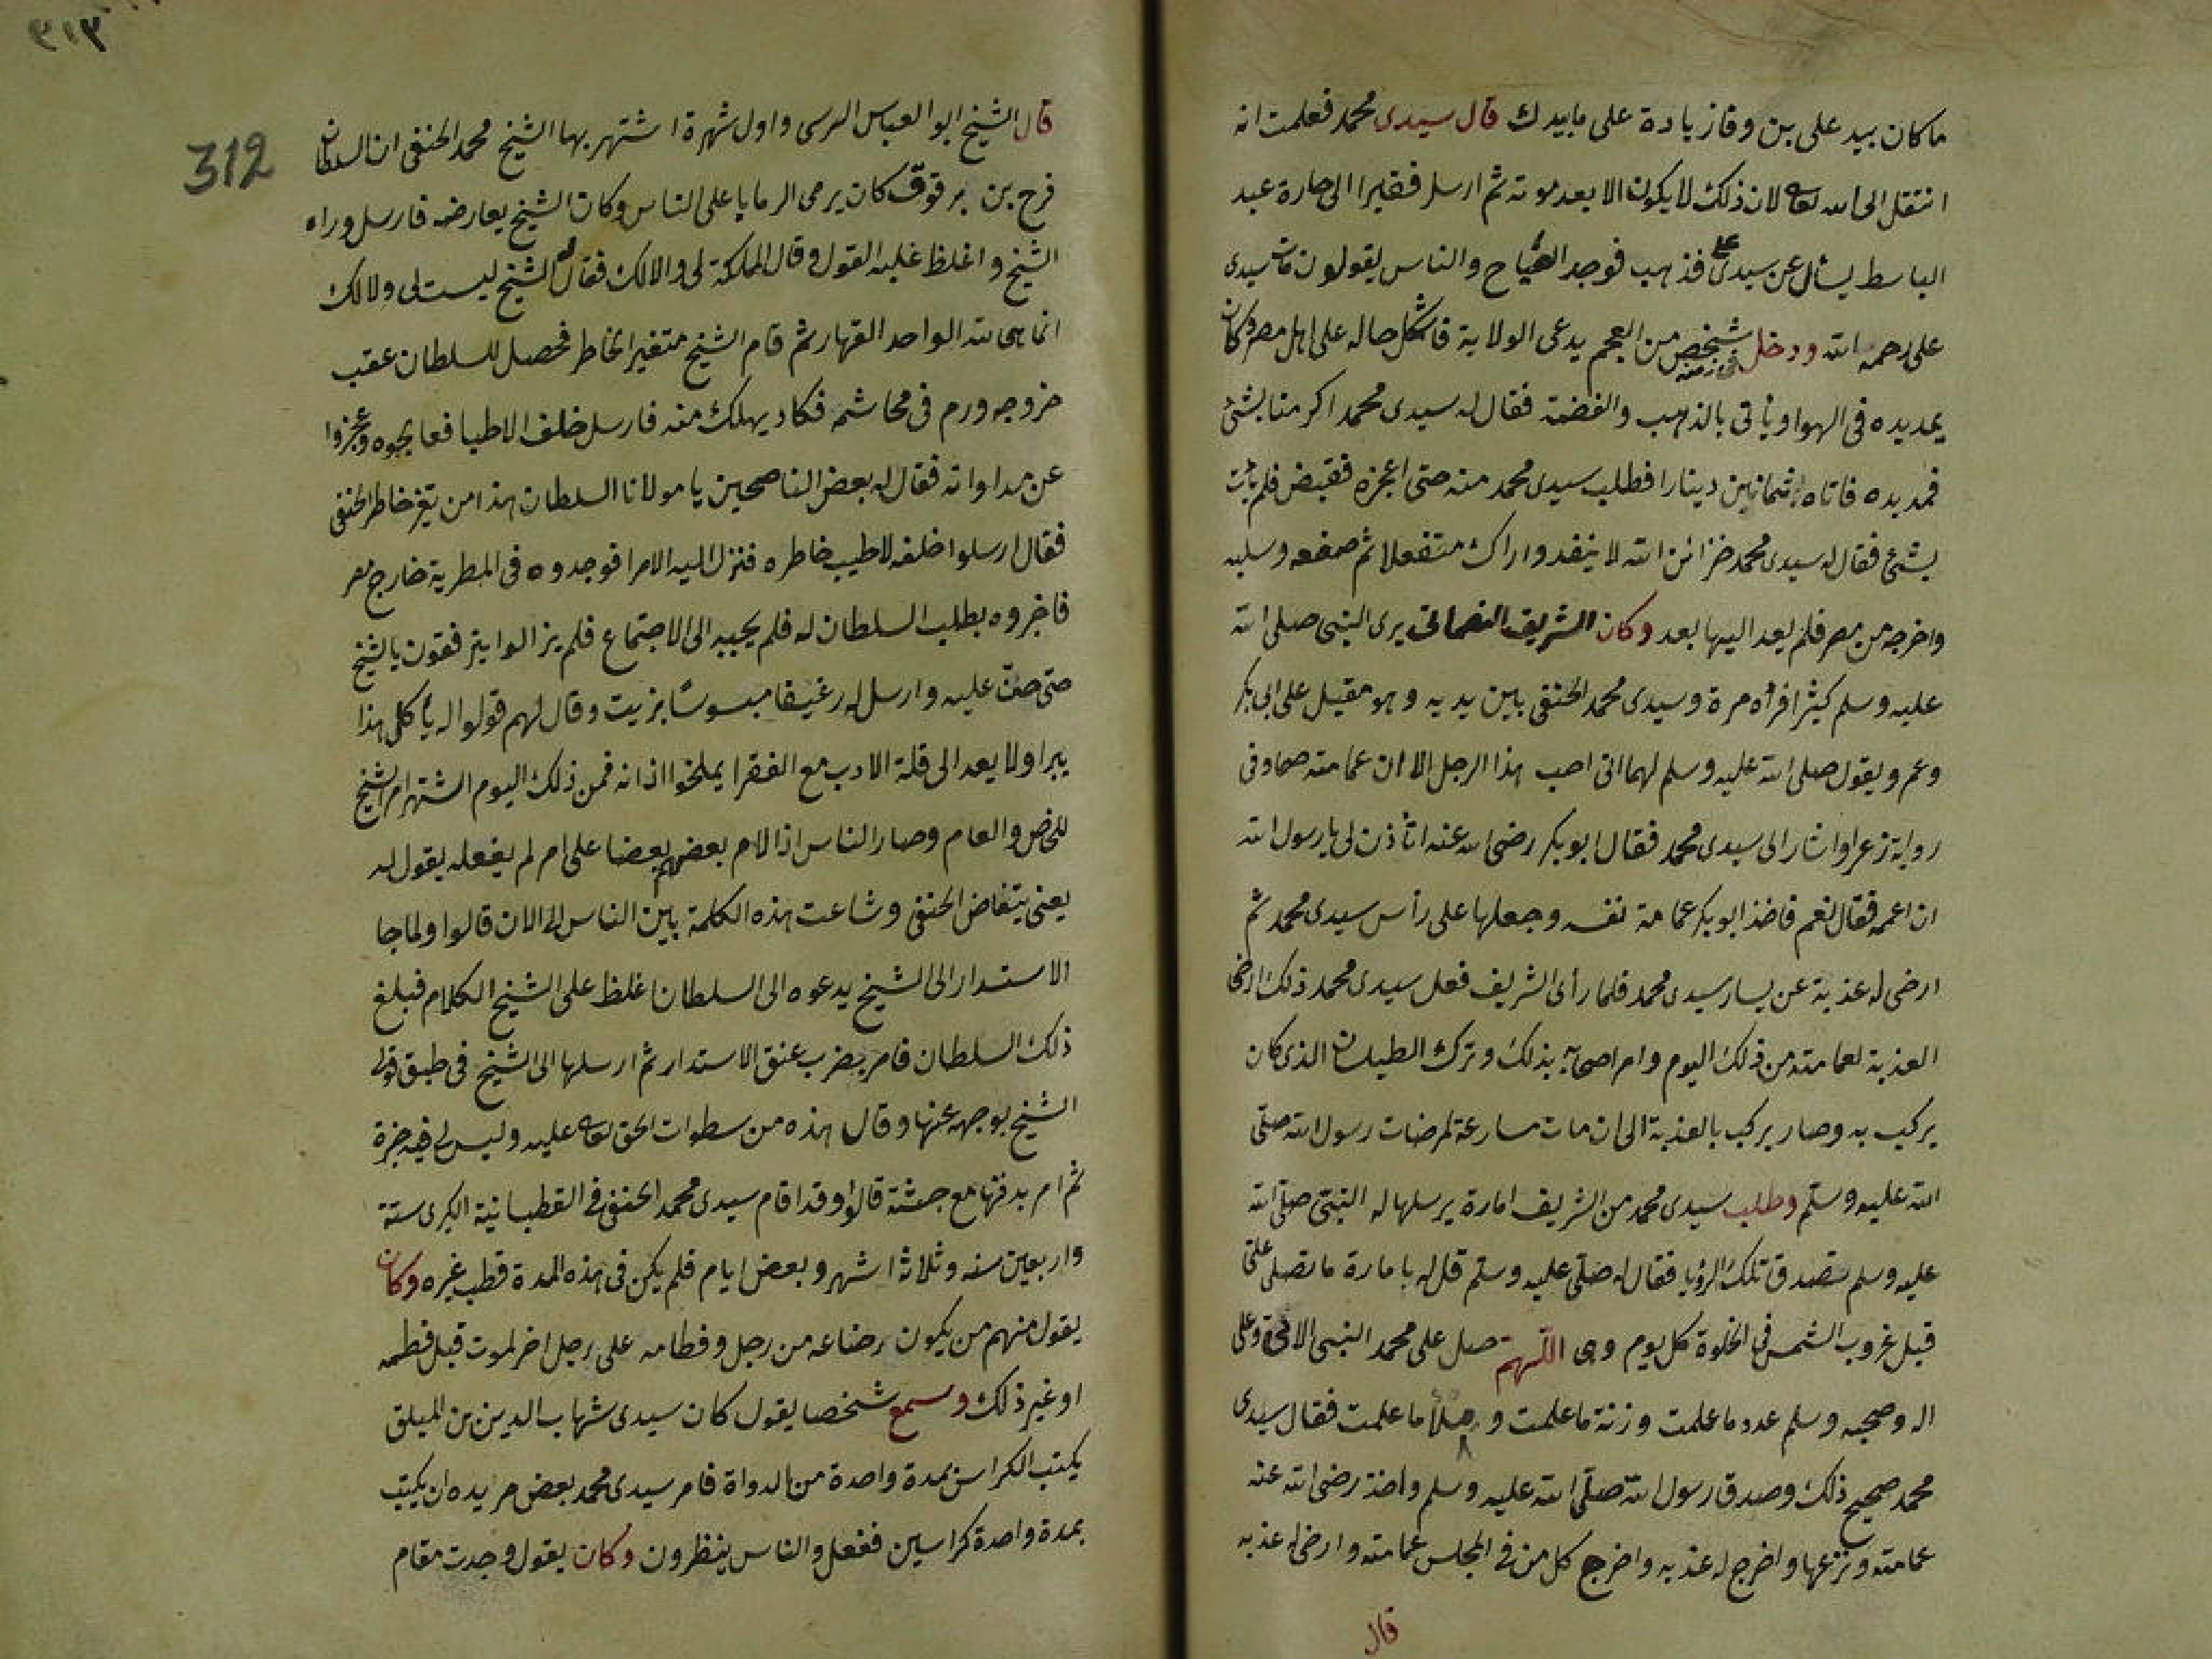 ما كان بيد على بن وفا زيادة على ما بيدك قال سيدى محمد فعلمت انه
انتقل الى الله تعالى لان ذلك لا يكون الا بعد موته ثم ارسل فقيرا الى حارة عبد
الباسط يسأل عن سيدى على فذهب فوجد الصياح والناس يقولون مات سيدى
على رحمه الله ودخل شخص من العجم فى زمنه يدعى الولاية فاشكل حاله على اهل مصر وكان
يمد يده فى الهوا ويأتى بالذهب والفضة فقال له سيدى محمد اكرمنا بشئ
فمد يده فاتاه بثمانين دينارا فطلب سيدى محمد منه حتى اعجزه فقبض فلم يأت
بشئ فقال له سيدى محمد خزائن الله لا ينفد واراك متفعلا ثم صفعه وسلبه
واخرجه من مصر فلم يعد اليها بعد وكان الشريف النعمانى يرى النبى صلى الله
عليه وسلم كثيرا فرأه مرة وسيدى محمد الحنفى بين يديه وهو مقبل على ابى بكر
وعمر ويقول صلى الله عليه وسلم لهما انى احب هذا الرجل الا ان عمامته صما وفى
رواية زعرا واشار الى سيدى محمد فقال ابو بكر رضى الله عنه اتأذن لى يا رسول الله
ان اعممه فقال نعم فاخذ ابو بكر عمامة نفسه وجعلها على رأس سيدى محمد ثم
ارخى له عذبة عن يسار سيدى محمد فلما رأى الشريف فعل سيدى محمد ذلك ارخا
العذبة لعمامته من ذلك اليوم وامر اصحابه بذلك وترك الطيلسان الذى كان
يركب به وصار يركب بالعذبة الى ان مات مسارعة لمرضات رسول الله صلى
الله عليه وسلم وطلب سيدى محمد من الشريف امارة يرسلها له النبى صلى الله
عليه وسلم بتصدق تلك الرؤيا فقال له صلى عليه وسلم قل له بامارة ما تصلى على
قبل غروب الشمس فى الخلوة كل يوم وهى اللهم صل على محمد النبى الامى وعلى
اله وصحبه وسلم عدد ما علمت وزنة ما علمت وملأ ما علمت فقال سيدى
محمد صحيح ذلك وصدق رسول الله صلى الله عليه وسلم واخذ رضى الله عنه
عمامته ونزعها واخرج له عذبه واخرج كل من فى المجلس عمامته وارخى له عذبه
قال
٣١٣
312
قال الشيخ ابو العباس السرسى واول شهرة اشتهر بها الشيخ محمد الحنفى ان السلطان
فرج بن برقوق كان يرمى الرمايا على الناس وكان الشيخ يعارضه فارسل وراه
الشيخ واغلظ عليه القول وقال المملكة لى والا لك فقال له الشيخ ليست لى ولا لك
انما هى لله الواحد القهار ثم قام الشيخ متغير الخاطر فحصل للسلطان عقب
خروجه ورم فى محاشمه فكاد يهلك منه فارسل خلف الاطبا فعالجوه وعجزوا
عن مداواته فقال له بعض الناصحين يا مولانا السلطان هذا من تغير خاطر الحنفى
فقال ارسلوا خلفه لاطيب خاطره فنزل اليه الامرا فوجدوه فى المطرية خارج مصر
فاخبروه بطلب السلطان له فلم يجيبه الى الاجتماع فلم يزالوا يترفقون بالشيخ
حتى حن عليه وارسل له رغيفا مبسوسا بزيت وقال لهم قولوا له يأكل هذا
يبرا ولا يعد الى قلة الادب مع الفقرا يملخوا اذانه فمن ذلك اليوم اشتهر امر الشيخ
للخاص والعام وصار الناس اذا لام بعضهم بعضا على امر لم يفعله يقول له
يعنى يتغاض الحنفى وشاعت هذه الكلمة بين الناس الى الان قالوا ولما جا
الاستدار الى الشيخ يدعوه الى السلطان اغلظ على الشيخ الكلام فبلغ
ذلك السلطان فامر بضرب عنق الاستدار ثم ارسلها الى الشيخ فى طبق فولى
الشيخ بوجهه عنها وقال هذه من سطوات الحق تعالى عليه وليس لى فيه خبرة
ثم امر بدفنها مع جثته قالوا وقد اقام سيدى محمد الحنفى فى القطبانية الكبرى ستة
واربعين سنه وثلاثة اشهر وبعض ايام فلم يكن فى هذه المدة قطب غيره وكان
يقول منهم من يكون رضاعه من رجل وفطامه على رجل اخر لموت قبل فطمه
او غير ذلك وسمع شخصا يقول كان سيدى شهاب الدين بن الميلق
يكتب الكراس بمدة واحدة من الدواة فامر سيدى محمد بعض مريده ان يكتب
بمدة واحدة كراسين ففعل والناس ينظرون وكان يقول وجدت مقام